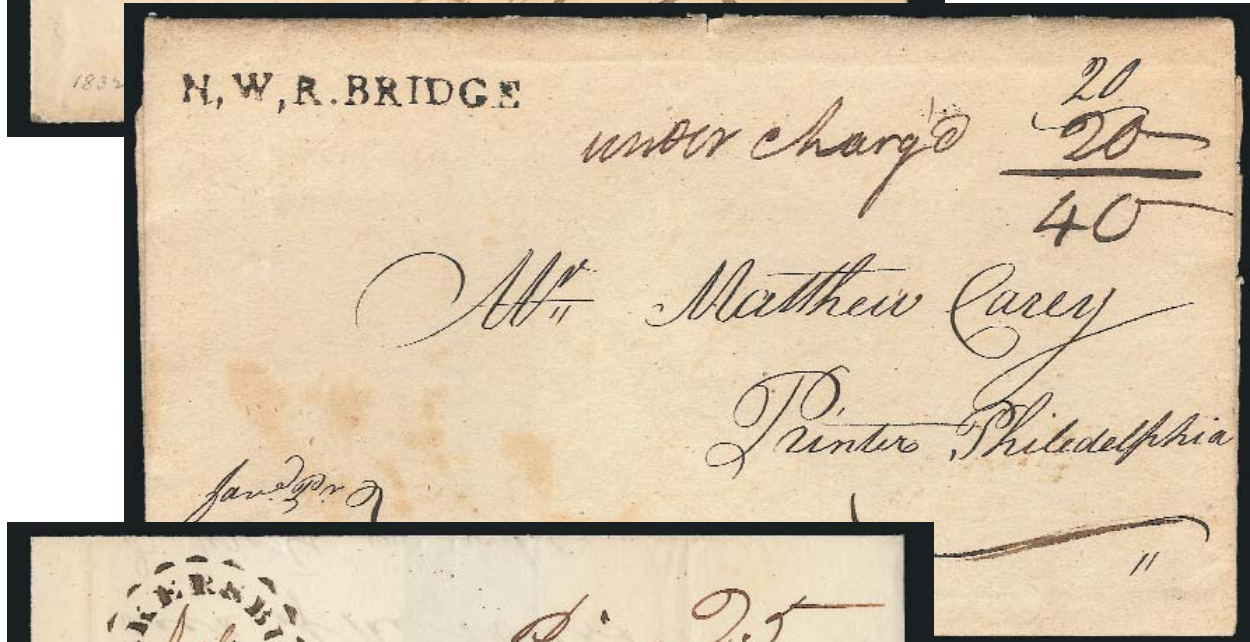 1832
N,W,R.BRIDGE
20
under charg'd 20
40
Mr Matthew Carey
Printer Philadelphia
KERSBU
25